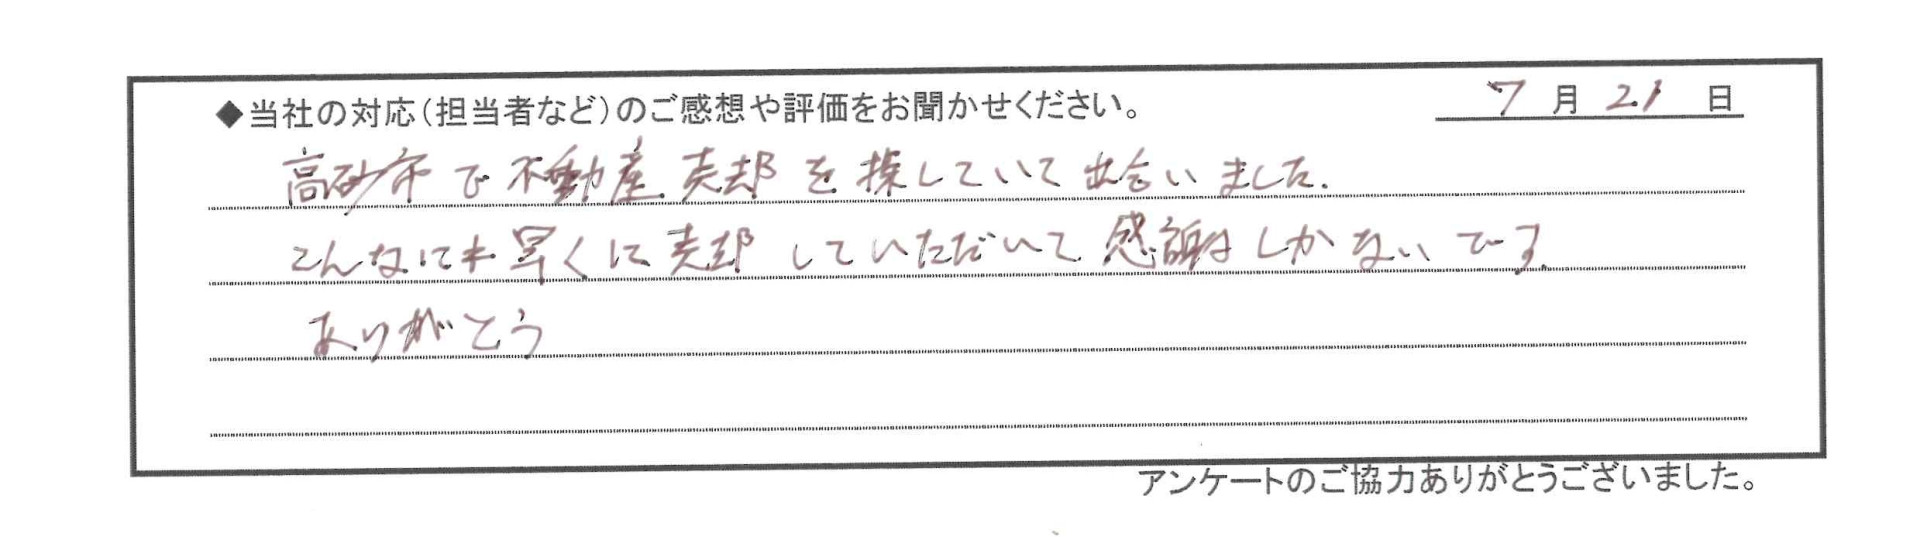 ◆当社の対応(担当者など)のご感想や評価をお聞かせください。 7月21日
高砂市で不動産売却を探していて出会いました.
こんなにも早くに売却していただいて感謝しかないです.
ありがとう
アンケートのご協力ありがとうございました。